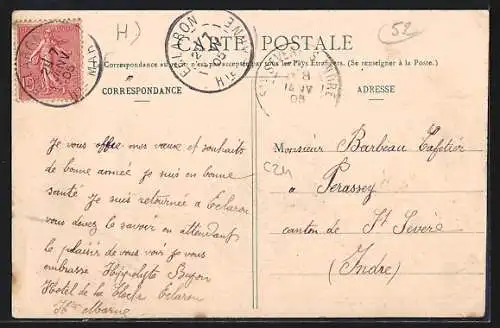 H)
52
CARTE POSTALE
Correspondance au verso n'est pas acceptée par tous les Pays Étrangers. (Se renseigner à la Poste.)
CORRESPONDANCE
ADRESSE
ECLARON
Hte MARNE
Je vous offre mes vœux et souhaits
de bonne année je suis en bonne
santé Je suis retournée a Eclaron
vous devez le savoir en attendant
le plaisir de vous voir je vous
embrasse Hippolyte
Hotel de la Eclaron
Hte Marne
Monsieur Barbeau Cafetier
a Perassey
canton de St Sevère
(Indre)